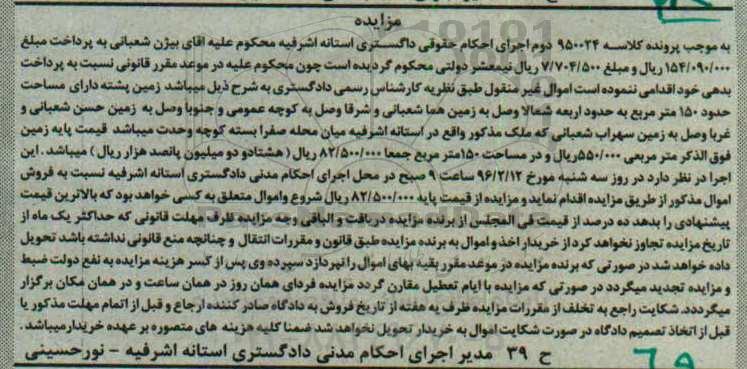 مزایده
به موجب پرونده کلاسه ۹۵۰۰۲۴ دوم اجرای احکام حقوقی دادگستری استانه اشرفیه محکوم علیه اقای بیژن شعبانی به پرداخت مبلغ
۱۵۴/۰۹۰/۰۰۰ ریال و مبلغ ۷/۷۰۴/۵۰۰ ریال نیمعشر دولتی محکوم گردیده است چون محکوم علیه در موعد مقرر قانونی نسبت به پرداخت
بدهی خود اقدامی ننموده است اموال غیر منقول طبق نظریه کارشناس رسمی دادگستری به شرح ذیل میباشد زمین پشته دارای مساحت
حدود ۱۵۰ متر مربع به حدود اربعه شمالا وصل به زمین هما شعبانی و شرقا وصل به کوچه عمومی و جنوبا وصل به زمین حسن شعبانی و
غربا وصل به زمین سهراب شعبانی که ملک مذکور واقع در استانه اشرفیه میان محله صفرا بسته کوچه وحدت میباشد قیمت پایه زمین
فوق الذکر متر مربعی ۵۵۰/۰۰۰ ریال و در مساحت ۱۵۰ متر مربع جمعا ۸۲/۵۰۰/۰۰۰ ریال (هشتادو دو میلیون پانصد هزار ریال) میباشد . این
اجرا در نظر دارد در روز سه شنبه مورخ ۹۶/۲/۱۲ ساعت ۹ صبح در محل اجرای احکام مدنی دادگستری استانه اشرفیه نسبت به فروش
اموال مذکور از طریق مزایده اقدام نماید و مزایده از قیمت پایه ۸۲/۵۰۰/۰۰۰ ریال شروع واموال متعلق به کسی خواهد بود که بالاترین قیمت
پیشنهادی را بدهد ده درصد از قیمت فی المجلس از برنده مزایده دریافت و الباقی وجه مزایده ظرف مهلت قانونی که حداکثر یک ماه از
تاریخ مزایده تجاوز نخواهد کرد از خریدار اخذ و اموال به برنده مزایده طبق قانون و مقررات انتقال و چنانچه منع قانونی نداشته باشد تحویل
داده خواهد شد در صورتی که برنده مزایده در موعد مقرر بقیه بهای اموال را نپردازد سپرده وی پس از کسر هزینه مزایده به نفع دولت ضبط
و مزایده تجدید میگردد در صورتی که مزایده با ایام تعطیل مقارن گردد مزایده فردای همان روز در همان ساعت و در همان مکان برگزار
میگرد‌دد. شکایت راجع به تخلف از مقررات مزایده ظرف یه هفته از تاریخ فروش به دادگاه صادر کننده ارجاع و قبل از اتمام مهلت مذکور یا
قبل از اتخاذ تصمیم دادگاه در صورت شکایت اموال به خریدار تحویل نخواهد شد ضمنا کلیه هزینه های متصوره بر عهده خریدارمیباشد .
ح ۳۹ مدیر اجرای احکام مدنی دادگستری استانه اشرفیه - نورحسینی